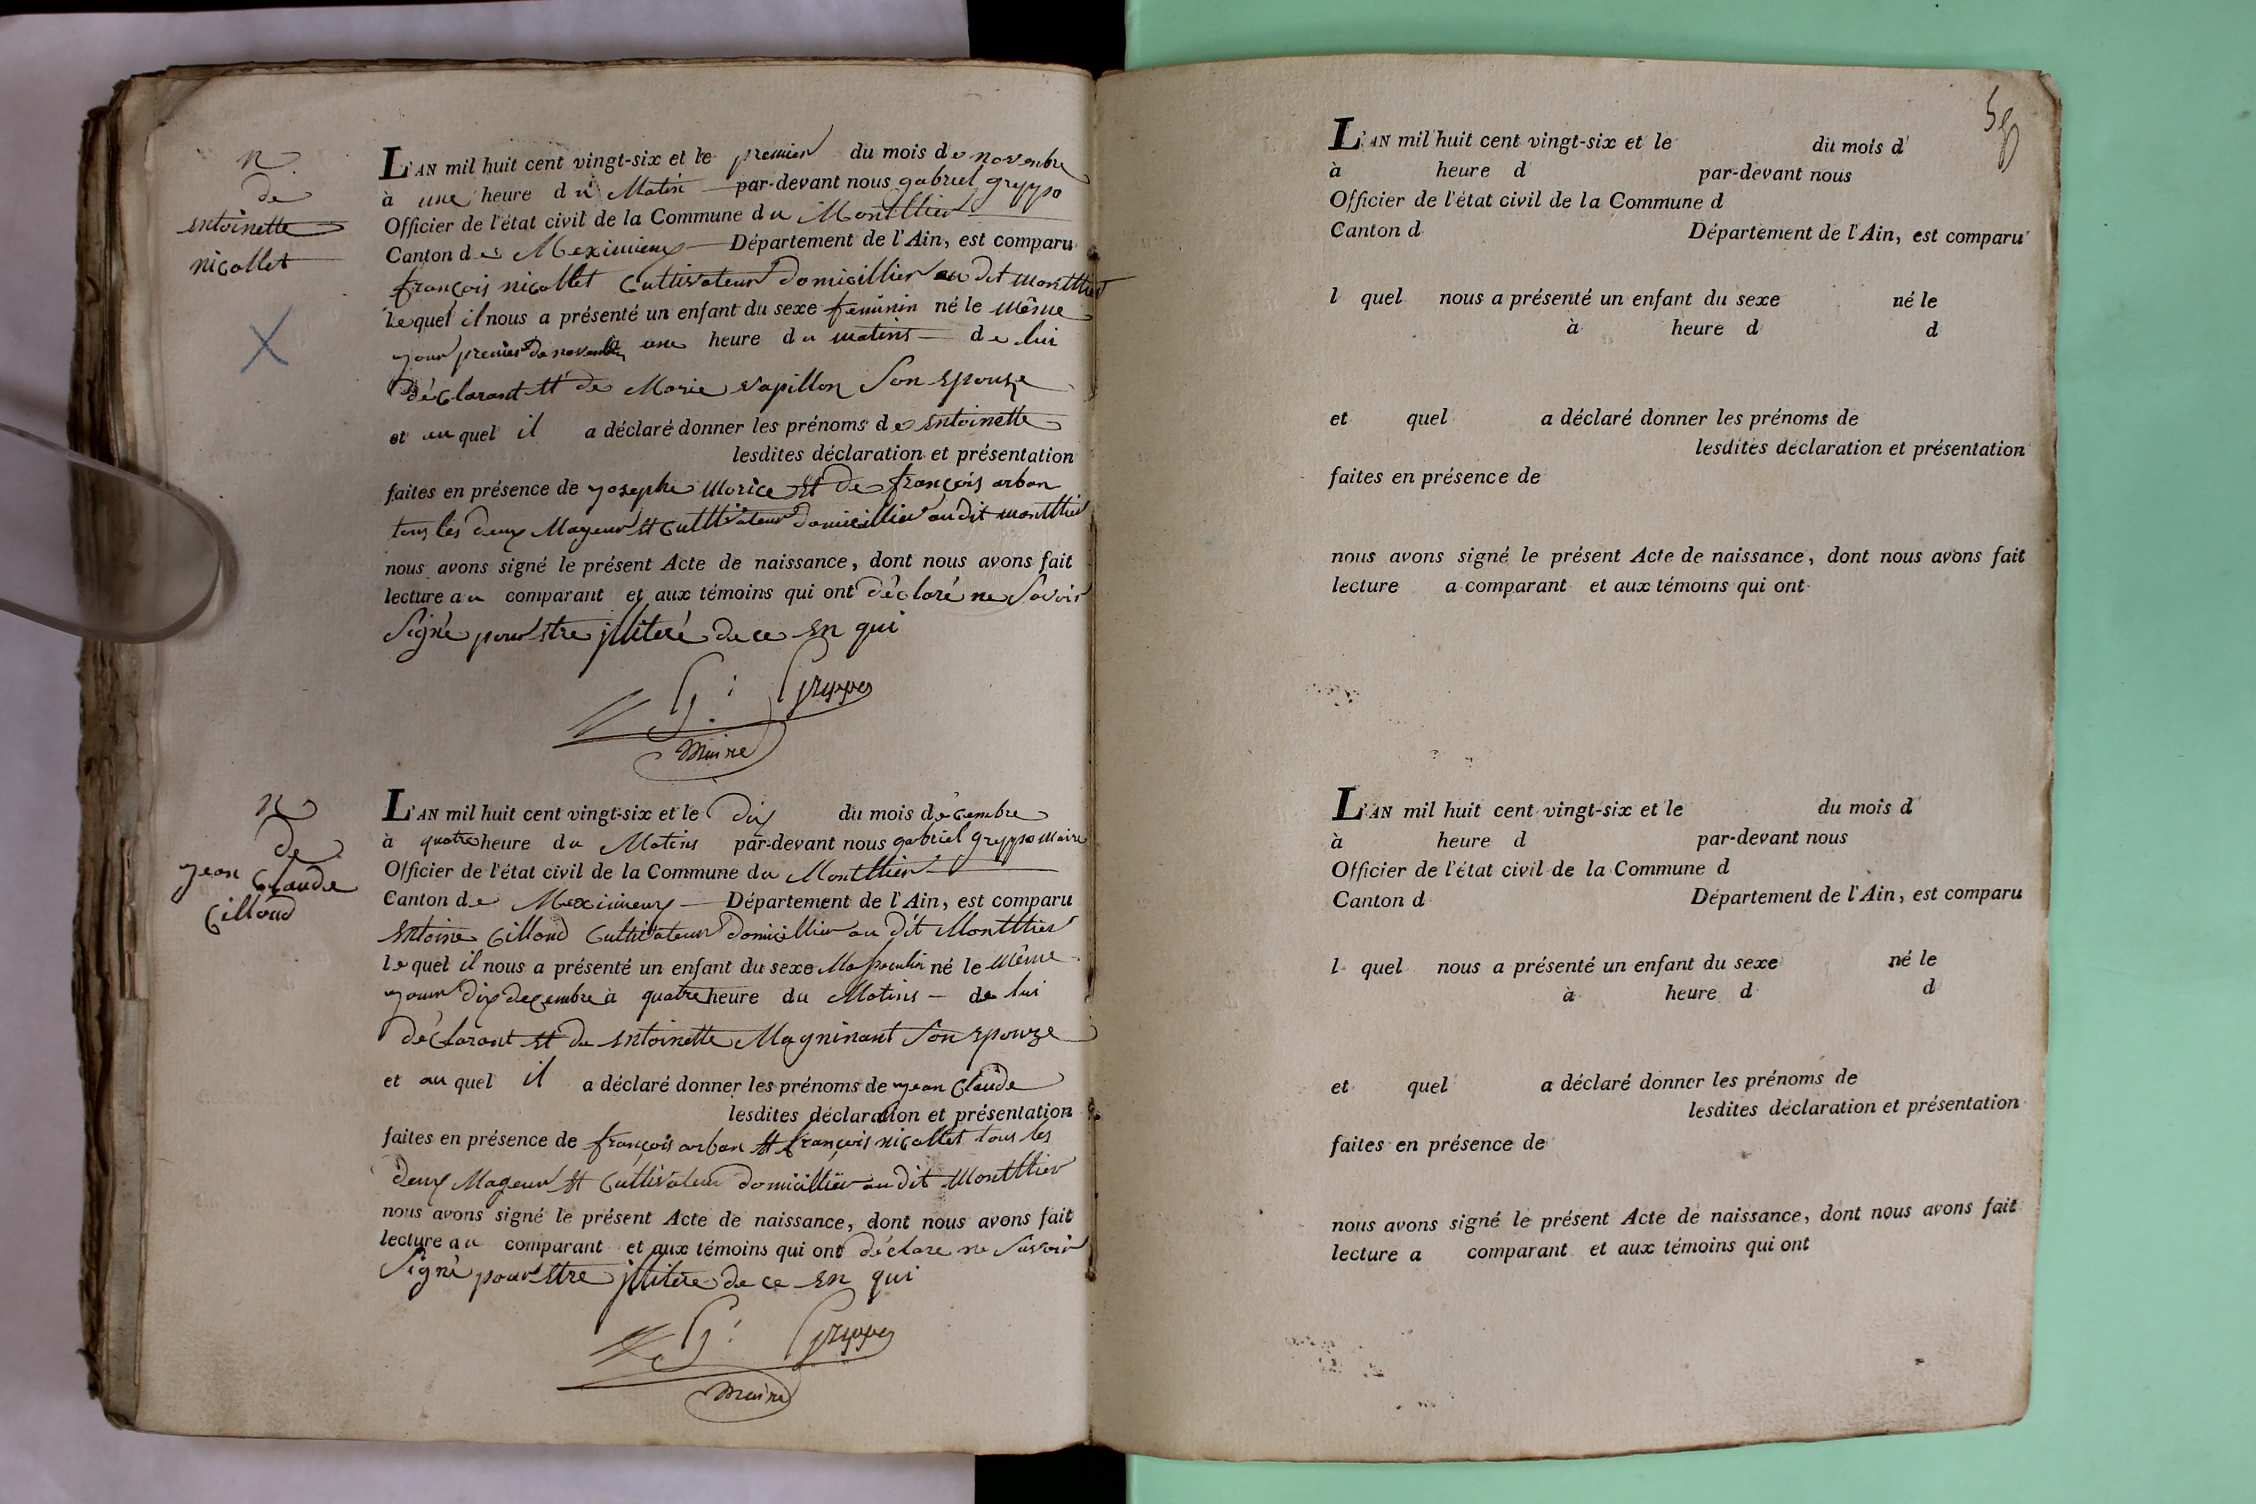 n
de
entoinette
nicollet
L'AN mil huit cent vingt-six et le premier du mois de novembre
à une heure du Matin par-devant nous gabriel greyppo
Officier de l'état civil de la Commune du Montllier
Canton de Meximieux Département de l'Ain, est comparu
françois nicollet Cultivateur domicillier au dit montllier
lequel il nous a présenté un enfant du sexe féminin né le même
jour premier de novembre à une heure du matins de lui
déclarant et de Marie vapillon son epouze
et au quel il a déclaré donner les prénoms de entoinette
lesdites déclaration et présentation
faites en présence de josephe morice et de françois arban
tous les deux Mageur et Cultivateur domicillier au dit montllier
nous avons signé le présent Acte de naissance, dont nous avons fait
lecture au comparant et aux témoins qui ont déclaré ne savoir
signé pour être illiteré de ce en qui
G: Greyppo
Maire
n
de
jean Claude
Gilloud
L'AN mil huit cent vingt-six et le dix du mois décembre
à quatre heure du Matins par-devant nous gabriel greyppo maire
Officier de l'état civil de la Commune du Montllier
Canton de Meximieux Département de l'Ain, est comparu
entoine Gilloud Cultivateur domicillier au dit Montllier
lequel il nous a présenté un enfant du sexe Masculin né le même
jour dix decembre à quatre heure du Matins de lui
déclarant et de entoinette Magninant son epouze
et au quel il a déclaré donner les prénoms de jean Claude
lesdites déclaration et présentation
faites en présence de françois arban et françois nicollet tous les
deux Mageur et Cultivateur domicillier au dit Montllier
nous avons signé le présent Acte de naissance, dont nous avons fait
lecture au comparant et aux témoins qui ont déclare ne savoir
signé pour être illitere de ce en qui
G: Greyppo
Maire
L'AN mil huit cent vingt-six et le du mois d
à heure d par-devant nous
Officier de l'état civil de la Commune d
Canton d Département de l'Ain, est comparu
l quel nous a présenté un enfant du sexe né le
à heure d d
et quel a déclaré donner les prénoms de
lesdites déclaration et présentation
faites en présence de
nous avons signé le présent Acte de naissance, dont nous avons fait
lecture a comparant et aux témoins qui ont
L'AN mil huit cent vingt-six et le du mois d
à heure d par-devant nous
Officier de l'état civil de la Commune d
Canton d Département de l'Ain, est comparu
l quel nous a présenté un enfant du sexe né le
à heure d d
et quel a déclaré donner les prénoms de
lesdites déclaration et présentation
faites en présence de
nous avons signé le présent Acte de naissance, dont nous avons fait
lecture a comparant et aux témoins qui ont